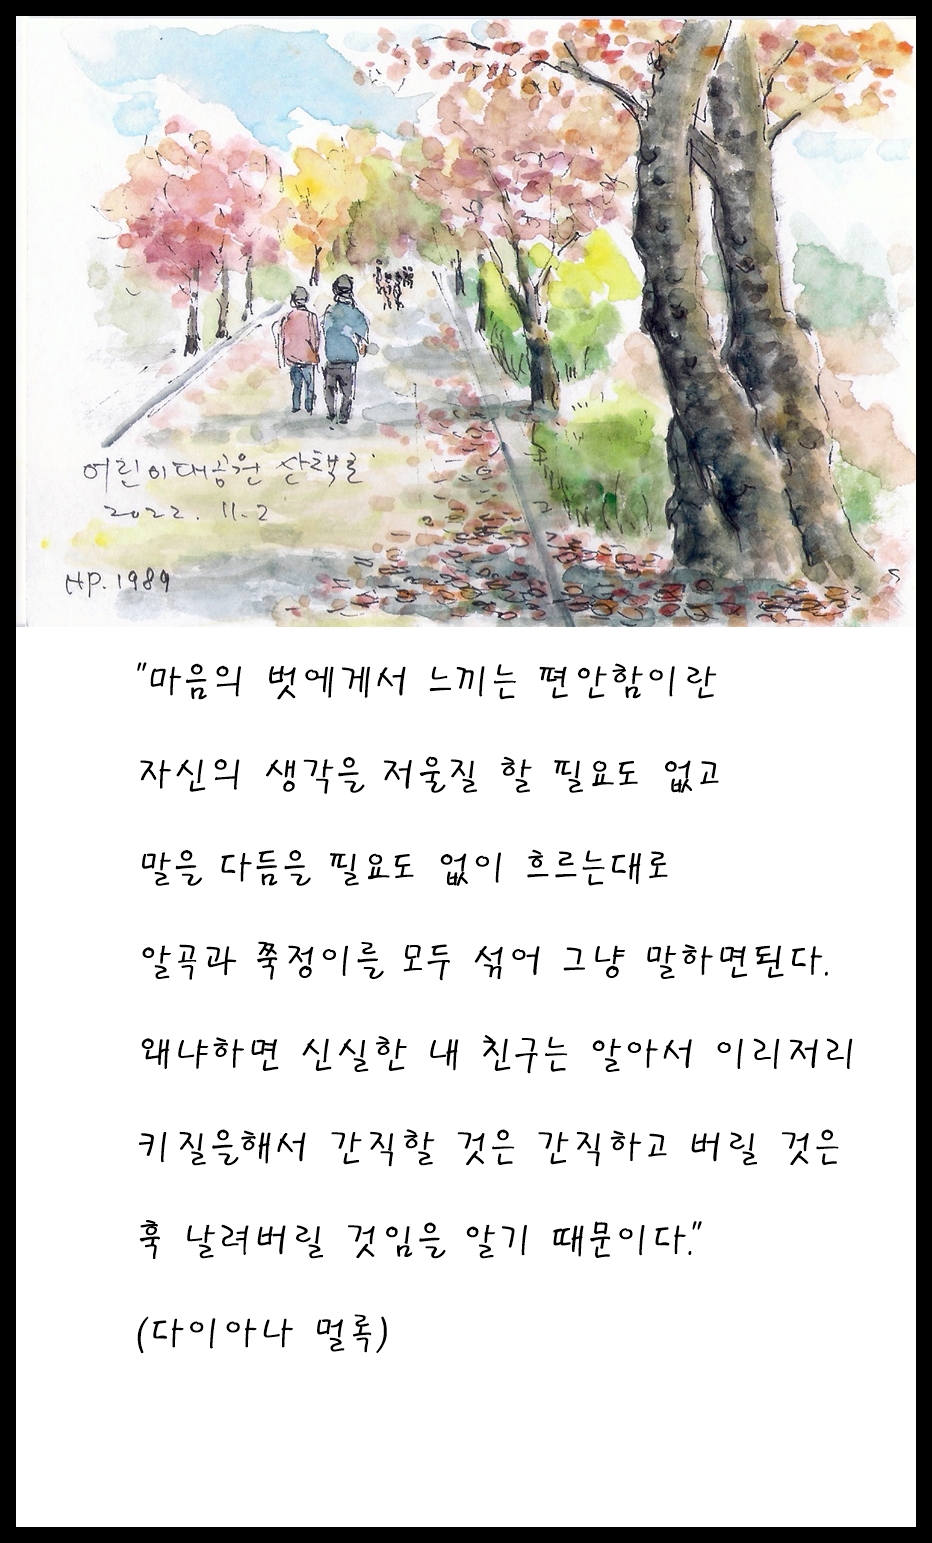 어린이대공원 산책로
2022. 11.2
HP.1989
"마음의 벗에게서 느끼는 편안함이란
자신의 생각을 저울질 할 필요도 없고
말을 다듬을 필요도 없이 흐르는대로
알곡과 쭉정이를 모두 섞어 그냥 말하면된다.
왜냐하면 신실한 내 친구는 알아서 이리저리
키질을해서 간직할 것은 간직하고 버릴 것은
훅 날려버릴 것임을 알기 때문이다."
(다이아나 멀록)